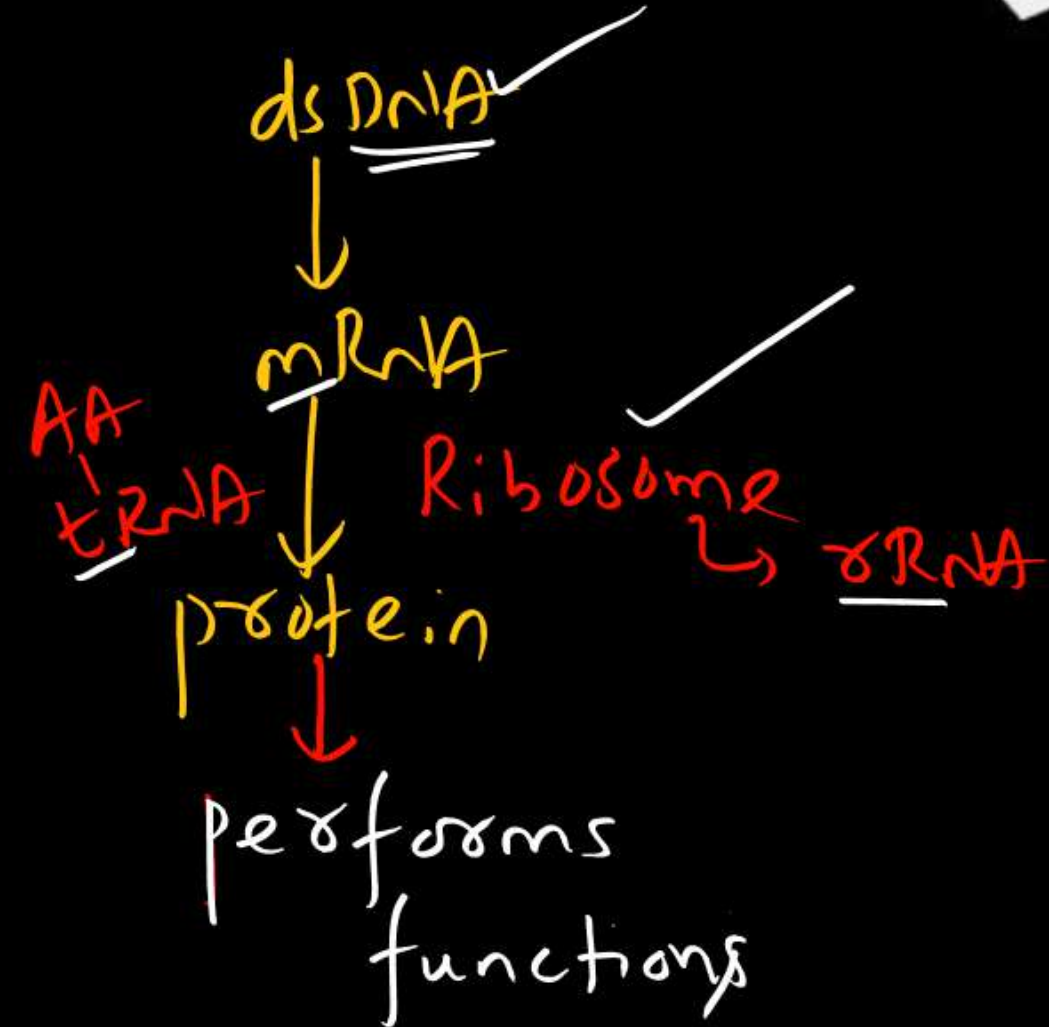 ds DNA
mRNA
AA
tRNA
Ribosome
rRNA
protein
performs
functions